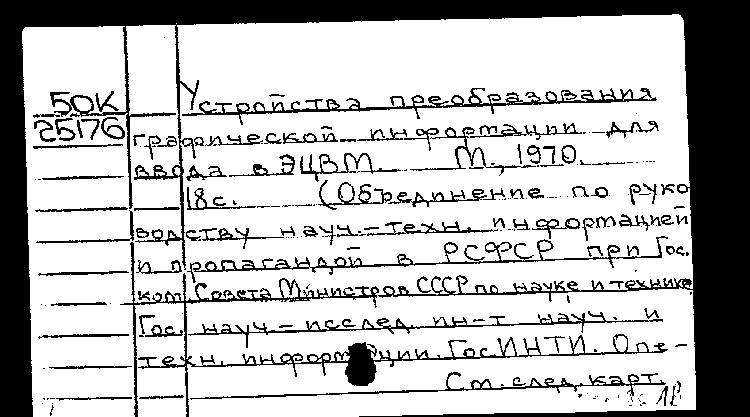 50К
25176
Устройства преобразования
графической информации для
ввода в ЭЦВМ. М., 1970.
18с. (Объединение по руко
водству науч.-техн. информацией
и пропагандой в РСФСР при Гос.
ком. Совета Министров СССР по науке и технике
Гос. науч.-исслед. ин-т науч. и
техн. информации. ГосИНТИ. Опе-
См. след. карт.